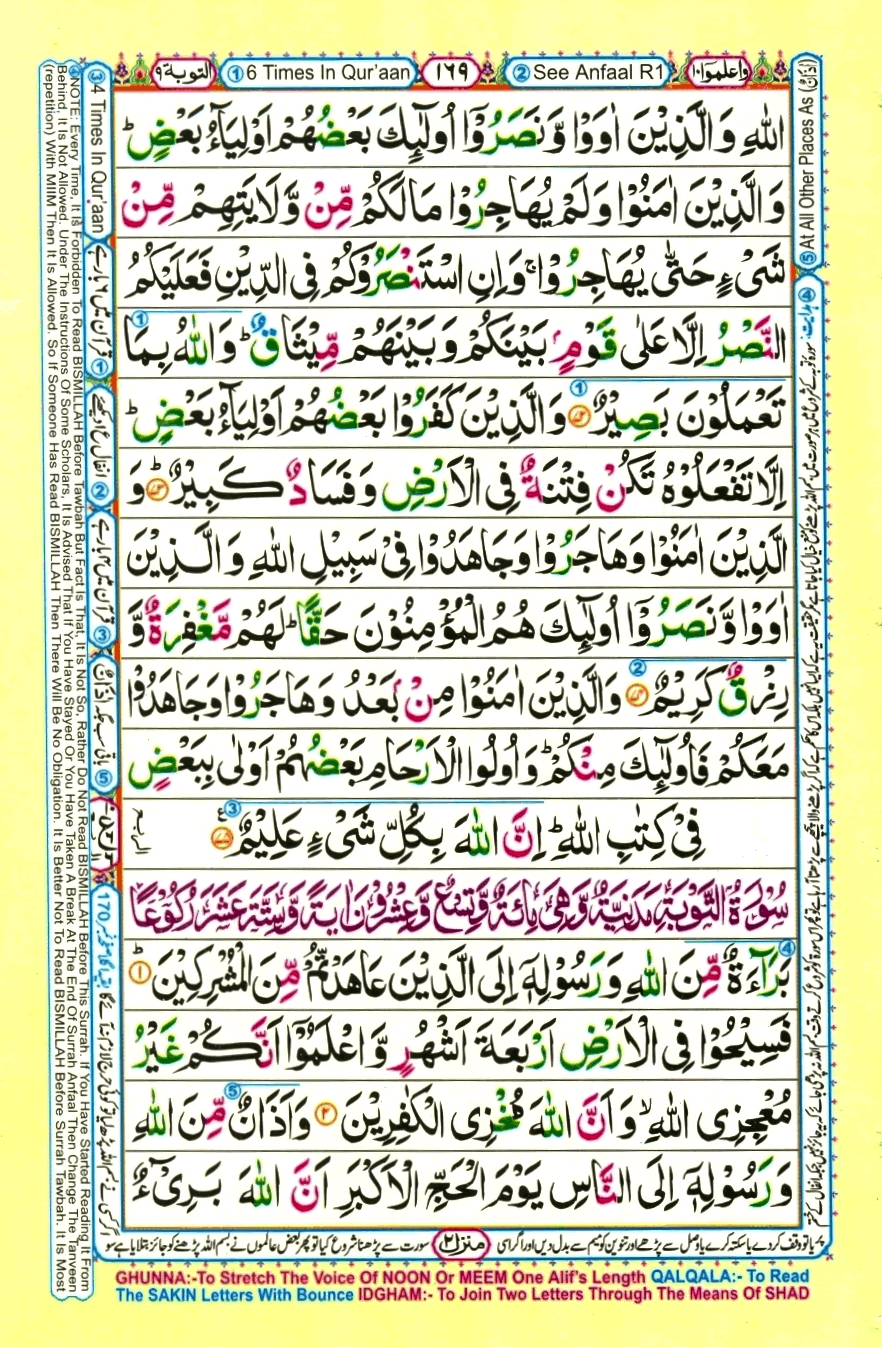 التوبة ٩
① 6 Times In Qur'aan
١٦٩
② See Anfaal R1
واعلموا ١٠
اللهِ وَالَّذِيْنَ اٰوَوْا وَّنَصَرُوْٓا اُولٰٓئِكَ بَعْضُهُمْ اَوْلِيَآءُ بَعْضٍ ؕ
وَالَّذِيْنَ اٰمَنُوْا وَلَمْ يُهَاجِرُوْا مَا لَكُمْ مِّنْ وَّلَايَتِهِمْ مِّنْ
شَىْءٍ حَتّٰى يُهَاجِرُوْا ۚ وَاِنِ اسْتَنْصَرُوْكُمْ فِى الدِّيْنِ فَعَلَيْكُمُ
النَّصْرُ اِلَّا عَلٰى قَوْمٍۭ بَيْنَكُمْ وَبَيْنَهُمْ مِّيْثَاقٌ ؕ وَاللهُ بِمَا ①
تَعْمَلُوْنَ بَصِيْرٌ ﴿۷۲﴾ ① وَالَّذِيْنَ كَفَرُوْا بَعْضُهُمْ اَوْلِيَآءُ بَعْضٍ ؕ
اِلَّا تَفْعَلُوْهُ تَكُنْ فِتْنَةٌ فِى الْاَرْضِ وَفَسَادٌ كَبِيْرٌ ؕ﴿۷۳﴾ وَ
الَّذِيْنَ اٰمَنُوْا وَهَاجَرُوْا وَجَاهَدُوْا فِىْ سَبِيْلِ اللهِ وَالَّذِيْنَ
اٰوَوْا وَّنَصَرُوْٓا اُولٰٓئِكَ هُمُ الْمُؤْمِنُوْنَ حَقًّا ؕ لَهُمْ مَّغْفِرَةٌ وَّ
رِزْقٌ كَرِيْمٌ ② ﴿۷۴﴾ وَالَّذِيْنَ اٰمَنُوْا مِنْۢ بَعْدُ وَهَاجَرُوْا وَجَاهَدُوْا
مَعَكُمْ فَاُولٰٓئِكَ مِنْكُمْ ؕ وَاُولُوا الْاَرْحَامِ بَعْضُهُمْ اَوْلٰى بِبَعْضٍ
فِىْ كِتٰبِ اللهِ ؕ اِنَّ اللهَ بِكُلِّ شَىْءٍ عَلِيْمٌ ③ ﴿۷۵﴾
سُوْرَةُ التَّوْبَةِ مَدَنِيَّةٌ وَّهِىَ مِائَةٌ وَّتِسْعٌ وَّعِشْرُوْنَ اٰيَةً وَّسِتَّةَ عَشَرَ رُكُوْعًا
④ بَرَآءَةٌ مِّنَ اللهِ وَرَسُوْلِهٖٓ اِلَى الَّذِيْنَ عَاهَدْتُّمْ مِّنَ الْمُشْرِكِيْنَ ؕ﴿۱﴾
فَسِيْحُوْا فِى الْاَرْضِ اَرْبَعَةَ اَشْهُرٍ وَّاعْلَمُوْٓا اَنَّكُمْ غَيْرُ
مُعْجِزِى اللهِ ۙ وَاَنَّ اللهَ مُخْزِى الْكٰفِرِيْنَ ﴿۲﴾ وَاَذَانٌ ⑤ مِّنَ اللهِ
وَرَسُوْلِهٖٓ اِلَى النَّاسِ يَوْمَ الْحَجِّ الْاَكْبَرِ اَنَّ اللهَ بَرِىْٓءٌ
منزل ٢
سورت سے پڑھنا شروع کیا تو پھر بعض عالموں نے بسم اللہ پڑھنے کو جائز بتلایا ہے سو
⑤ At All Other Places As (اَذَانٌ)
③ 4 Times In Qur'aan
قرآن میں ۶ بار ہے ①
انفال ع۱ دیکھئے ②
قرآن میں ۴ بار ہے ③
باقی سب جگہ اَذَانٌ ⑤
④NOTE: Every Time, It Is Forbidden To Read BISMILLAH Before Tawbah But Fact Is That, It Is Not So, Rather Do Not Read BISMILLAH Before This Surrah. If You Have Started Reading It From
Behind, It Is Not Allowed. Under The Instructions Of Some Scholars, It Is Advised That If You Have Stayed Or You Have Taken A Break At The End Of Surrah Anfaal Then Change The Tanveen
(repetition) With MIIM Then It Is Allowed. So If Someone Has Read BISMILLAH Then There Will Be No Obligation. It Is Better Not To Read BISMILLAH Before Surrah Tawbah. It Is Most
GHUNNA:-To Stretch The Voice Of NOON Or MEEM One Alif's Length QALQALA:- To Read
The SAKIN Letters With Bounce IDGHAM:- To Join Two Letters Through The Means Of SHAD